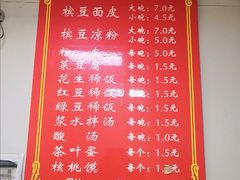 槟豆面皮 大碗：7.0元
小碗：4.5元
槟豆凉粉 大碗：7.0元
小碗：5.0元
每碗：5.0元
菜豆腐 每碗：1.5元
花生稀饭 每碗：1.5元
红豆稀饭 每碗：1.5元
绿豆稀饭 每碗：1.5元
浆水拌汤 每碗：1.5元
酸汤 每碗：1.0元
茶叶蛋 每个：1.5元
核桃馍 每个：1.5元